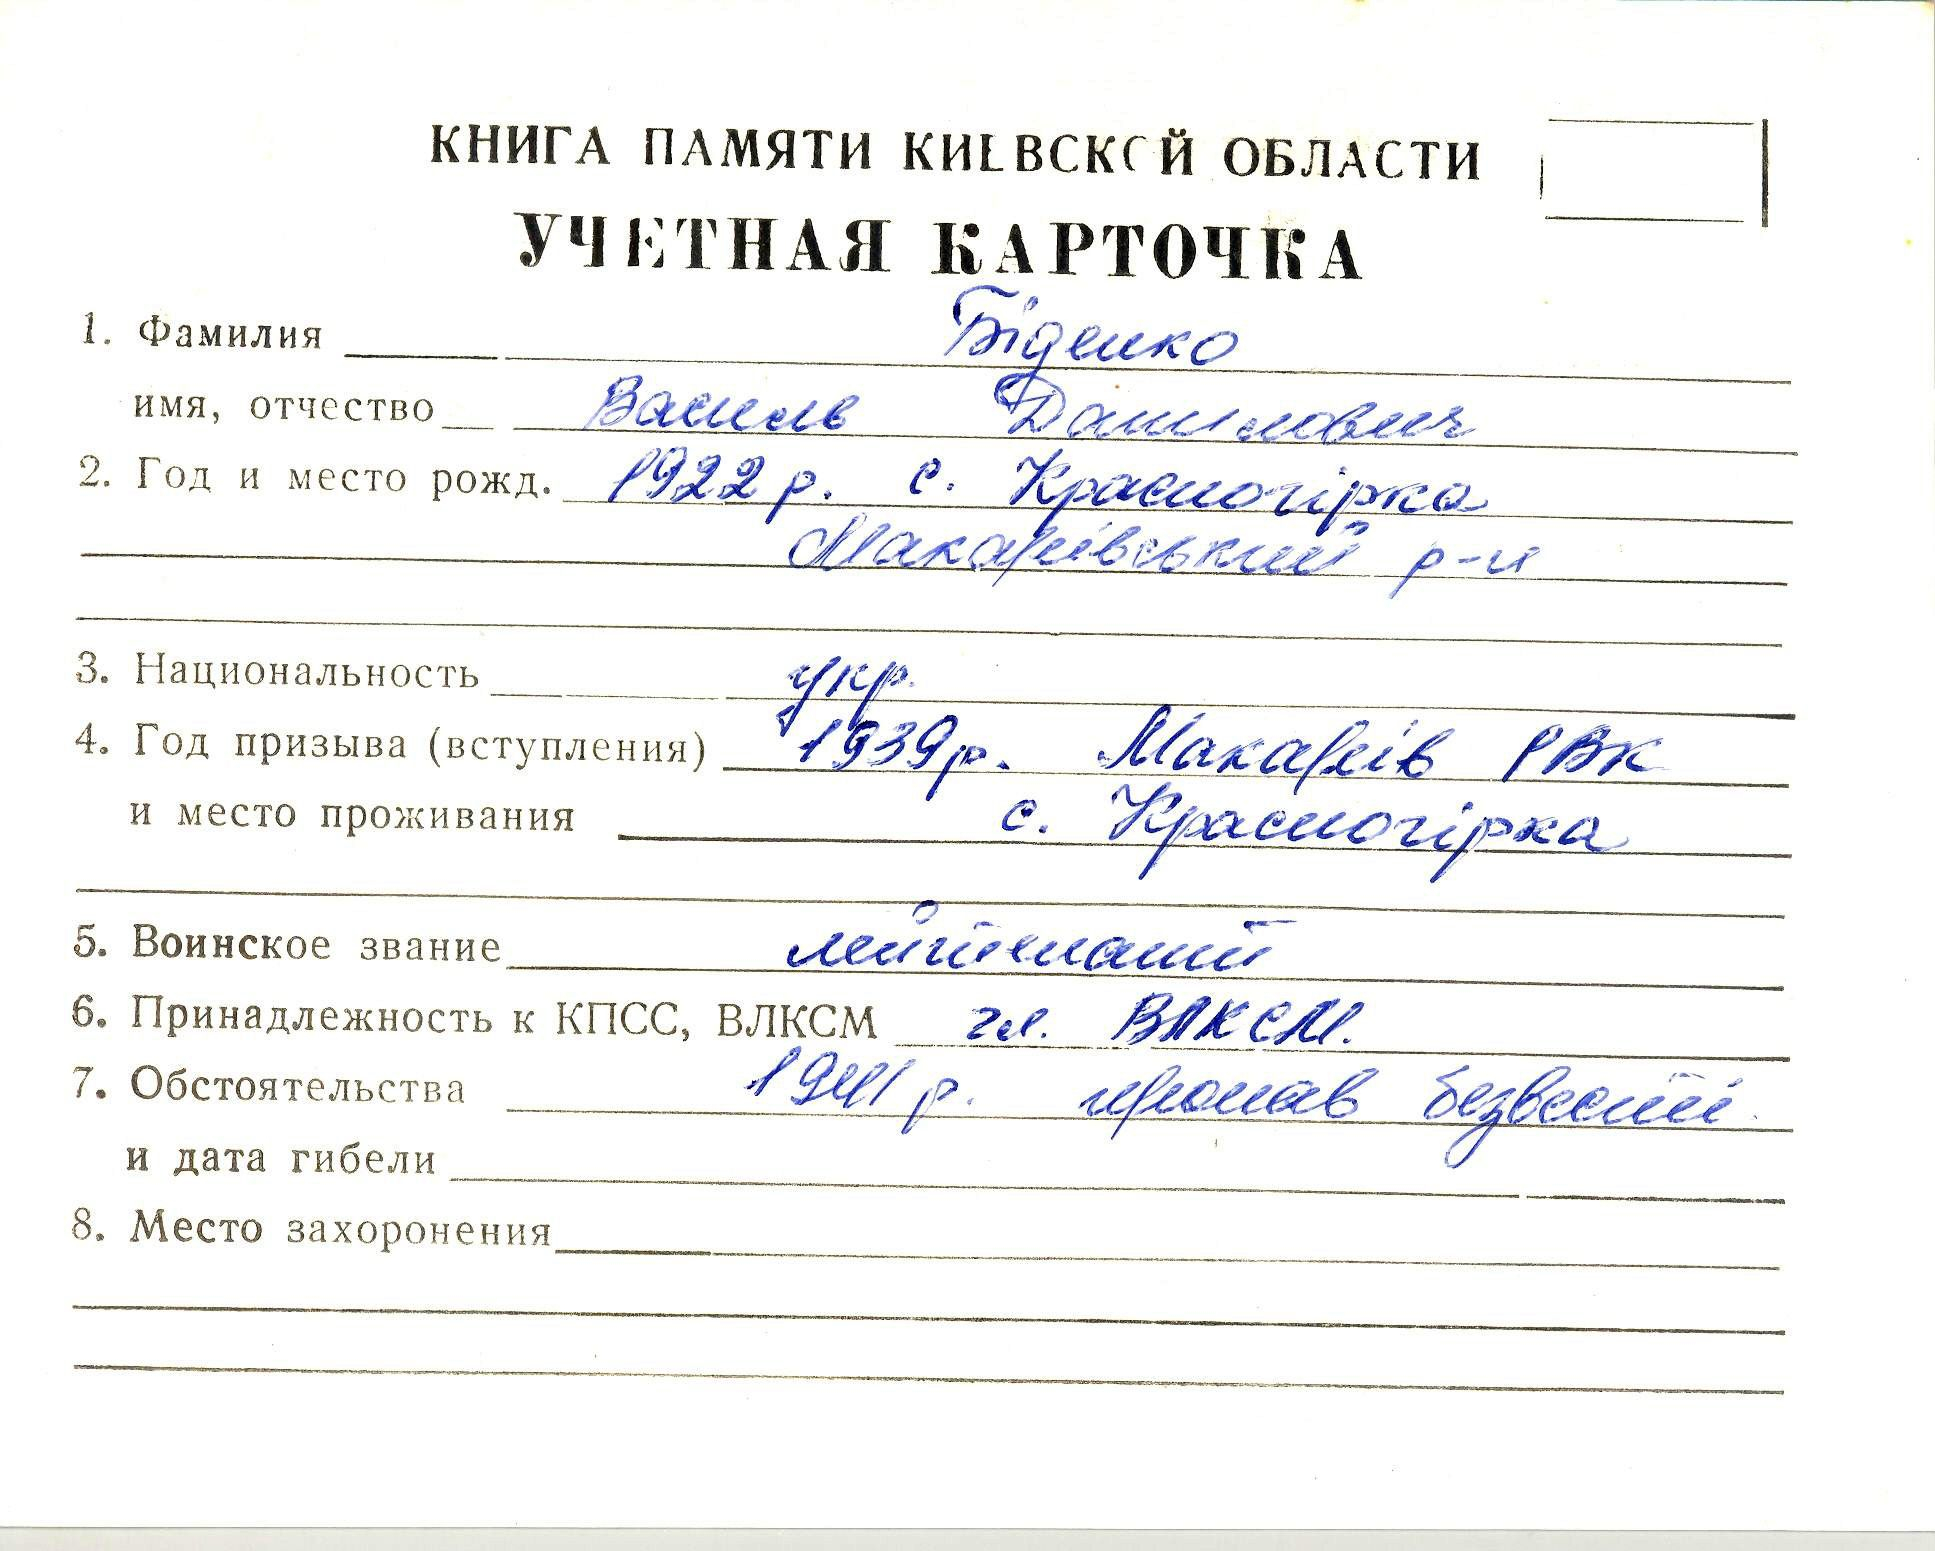 КНИГА ПАМЯТИ КИЕВСКОЙ ОБЛАСТИ
УЧЕТНАЯ КАРТОЧКА
1. Фамилия Біденко
имя, отчество Василь Данилович
2. Год и место рожд. 1922 р. с. Красногірка
Макарівський р-н
3. Национальность укр.
4. Год призыва (вступления) 1939 р. Макарів РВК
и место проживания с. Красногірка
5. Воинское звание лейтенант
6. Принадлежность к КПСС, ВЛКСМ чл. ВЛКСМ.
7. Обстоятельства 1941 р. пропав безвесті.
и дата гибели
8. Место захоронения